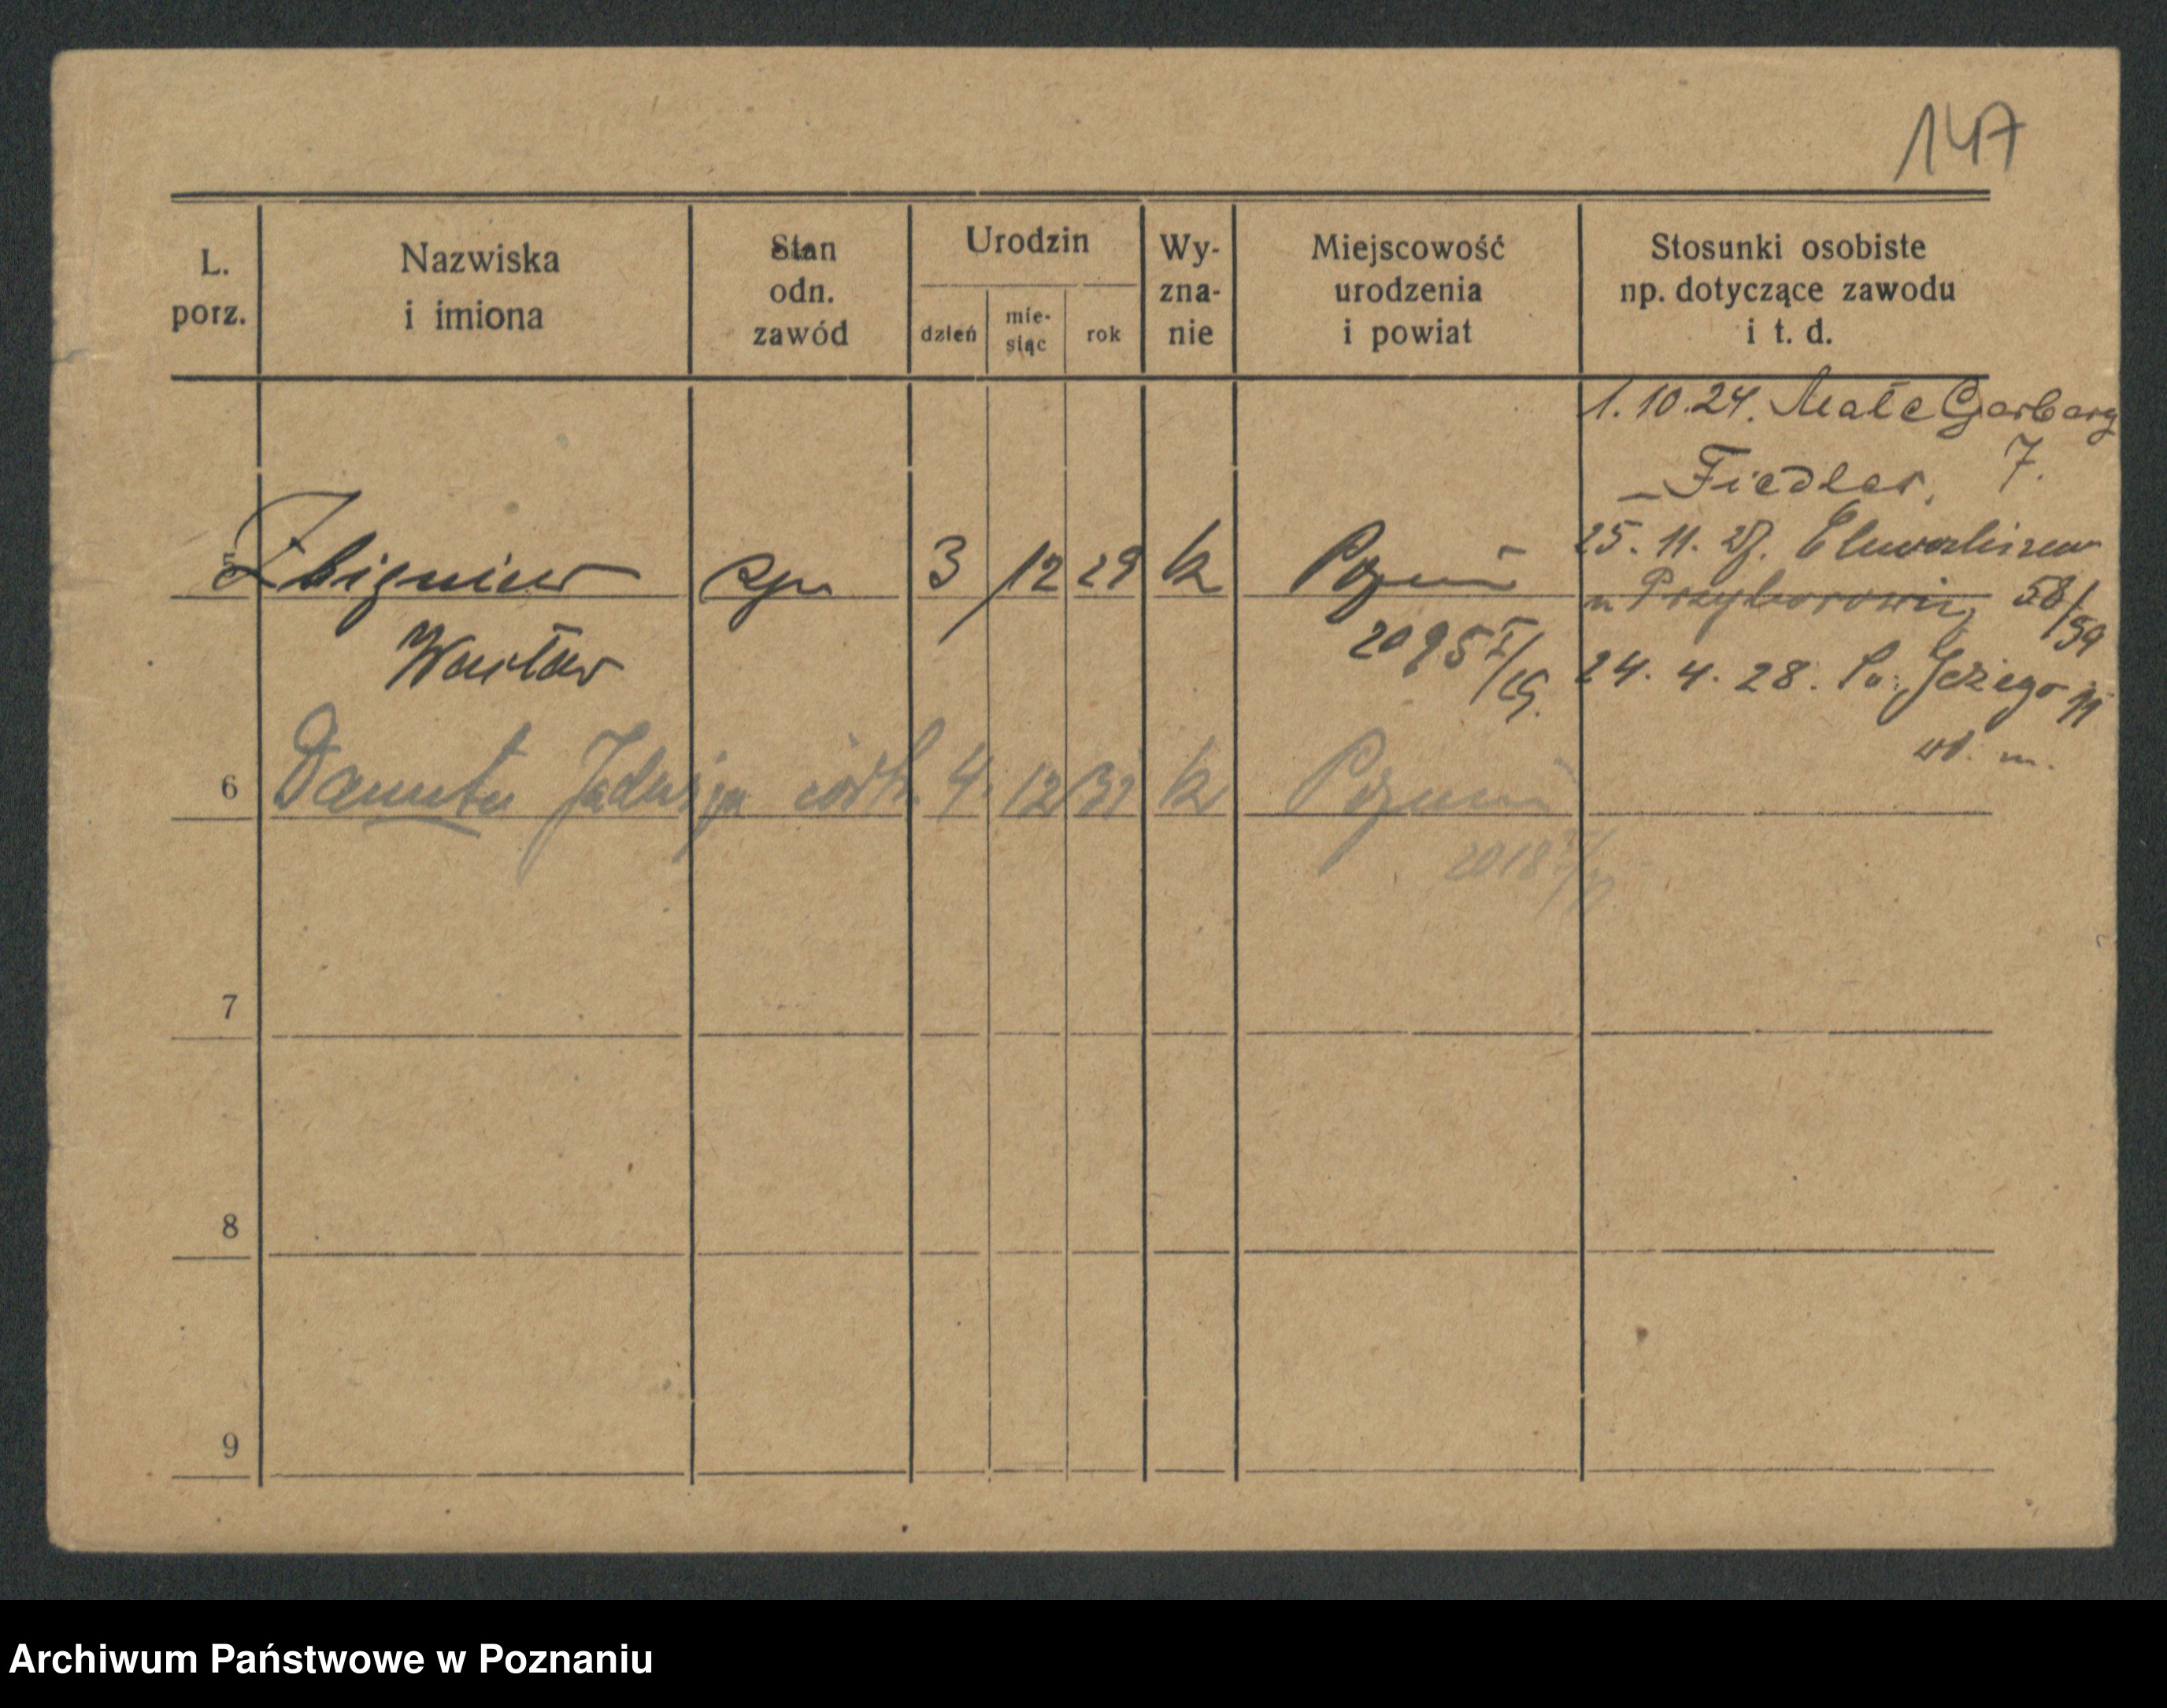 147
L. porz. Nazwiska i imiona Stan odn. zawód Urodzin dzień mie-siąc rok Wy-zna-nie Miejscowość urodzenia i powiat Stosunki osobiste np. dotyczące zawodu i t. d.
1.10.24. Małe Garbary
Fiedler, 7.
25. 11. 27.
5 Zbigniew syn 3/12 29 k Poznań
58/59
Wacław 2095 I/29.
24. 4. 28. Św. Jerzego 11
wł. m.
6 Danuta Jadwiga córk. 4. 12 31 k Poznań
2018
7
8
9
Archiwum Państwowe w Poznaniu